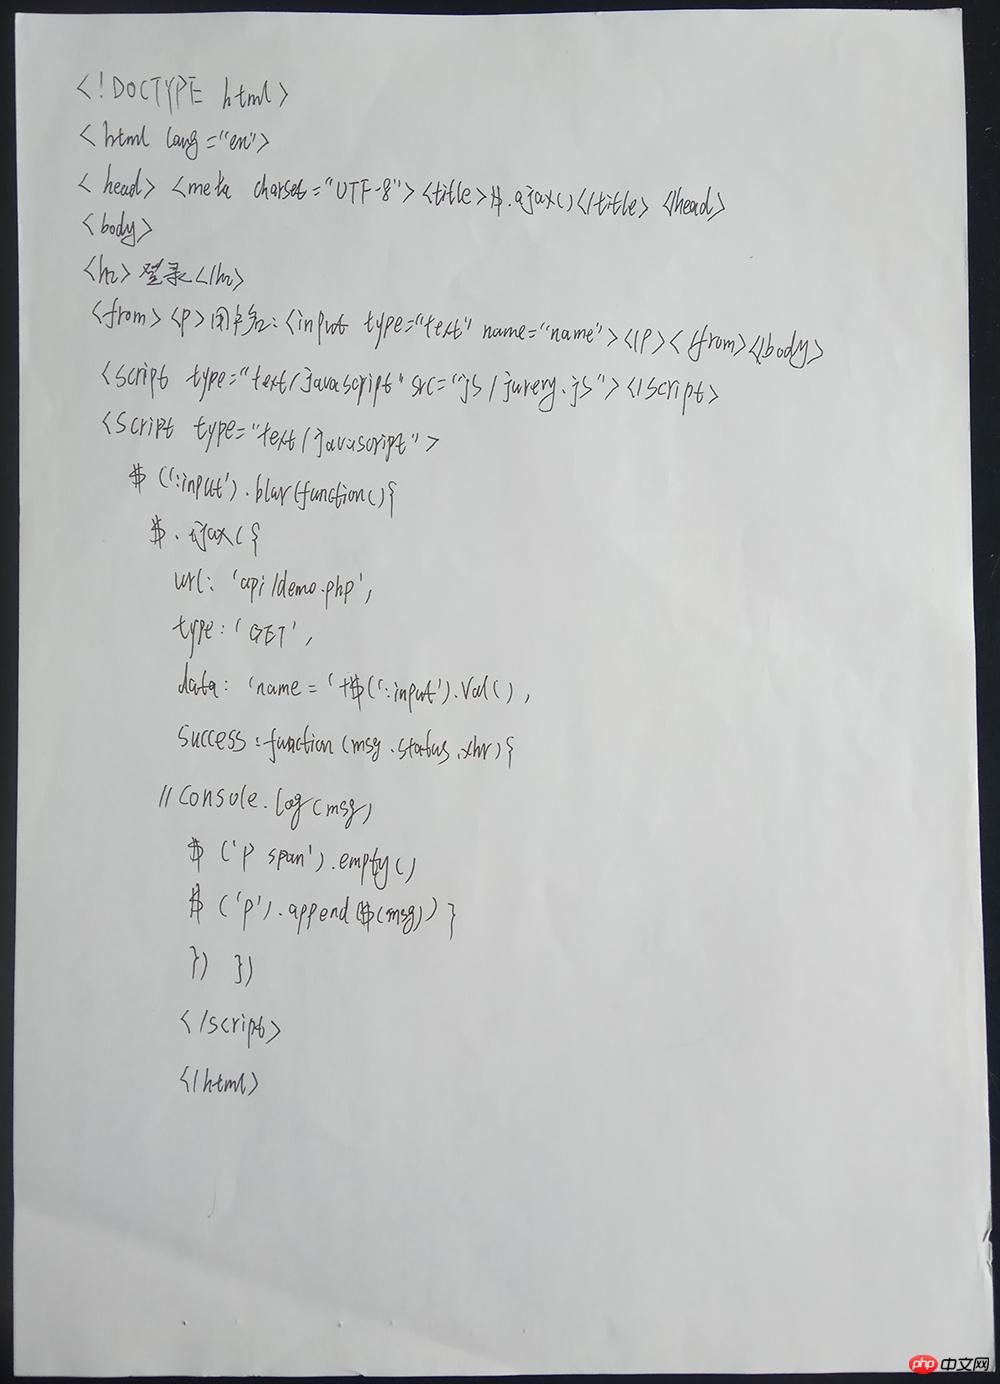 <!DOCTYPE html>
<html lang="en">
<head> <meta charset="UTF-8"> <title>$.ajax()</title> </head>
<body>
<h2>登录</h2>
<from> <p>用户名: <input type="text" name="name"> </p> < from> </body>
<script type="text/javascript" src="js/jurery.js"> </script>
<script type="text/javascript">
$(':input').blur(function(){
$.ajax({
url: 'api/demo.php',
type: 'GET',
data: 'name=' +$(':input').val(),
success:function(msg.status.xhr){
//console.log(msg)
$('p span').empty()
$('p').append($(msg)) }
}) })
</script>
</html>
php中文网